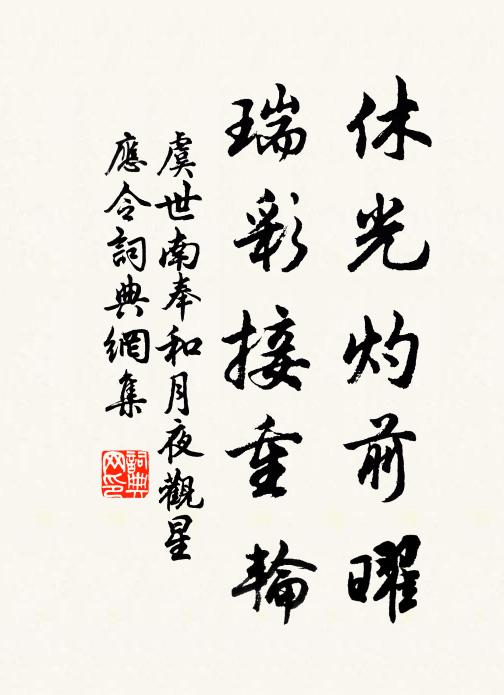 休光灼前曜
瑞彩接重輪
虞世南奉和月夜觀星
應令詞典網集
詞典
网印